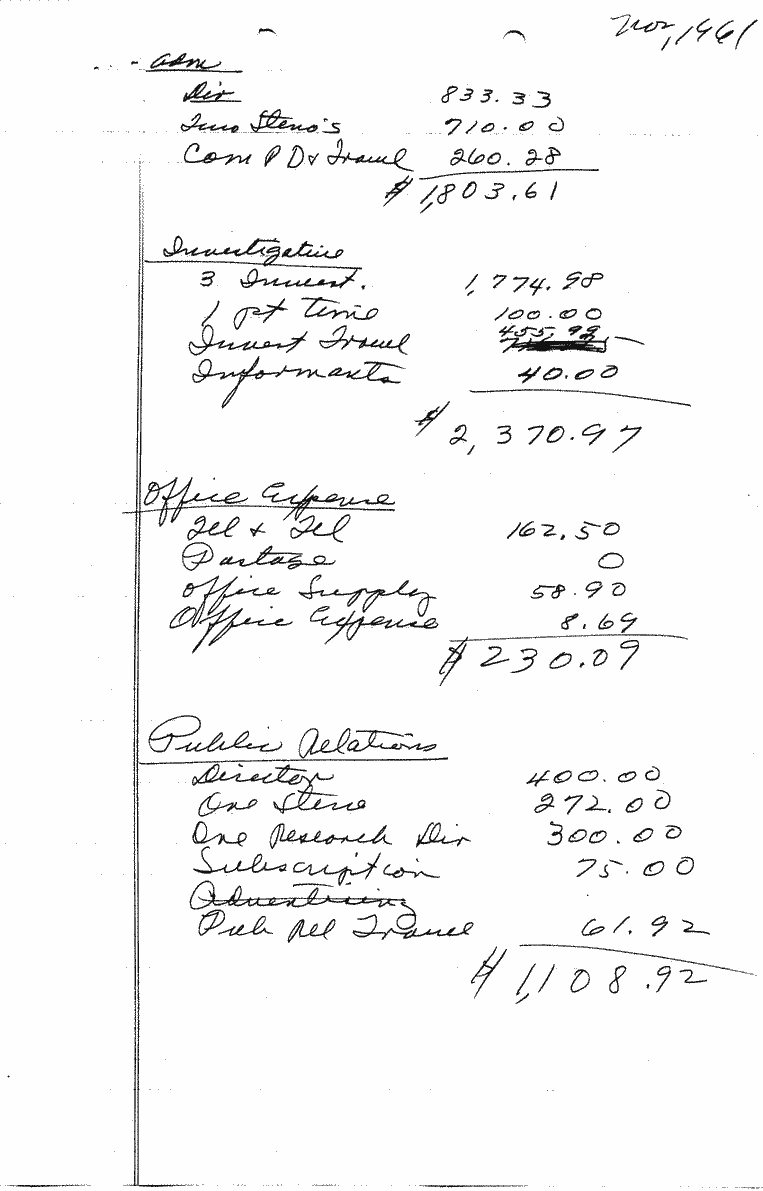 Nov, 1961
Adm
Dir 833.33
Two Steno's 710.00
Com P D & Travel 260.28
$ 1,803.61
Investigative
3 Invest. 1,774.98
1 pt time 100.00
Invest Travel 455.99
Informants 40.00
$ 2,370.97
Office Expense
Tel & Tel 162.50
Postage 0
Office Supply 58.90
Office Expense 8.69
$ 230.09
Public Relations
Director 400.00
One Steno 272.00
One Research Dir 300.00
Subscription 75.00
Advertising
Pub Rel Travel 61.92
$ 1,108.92